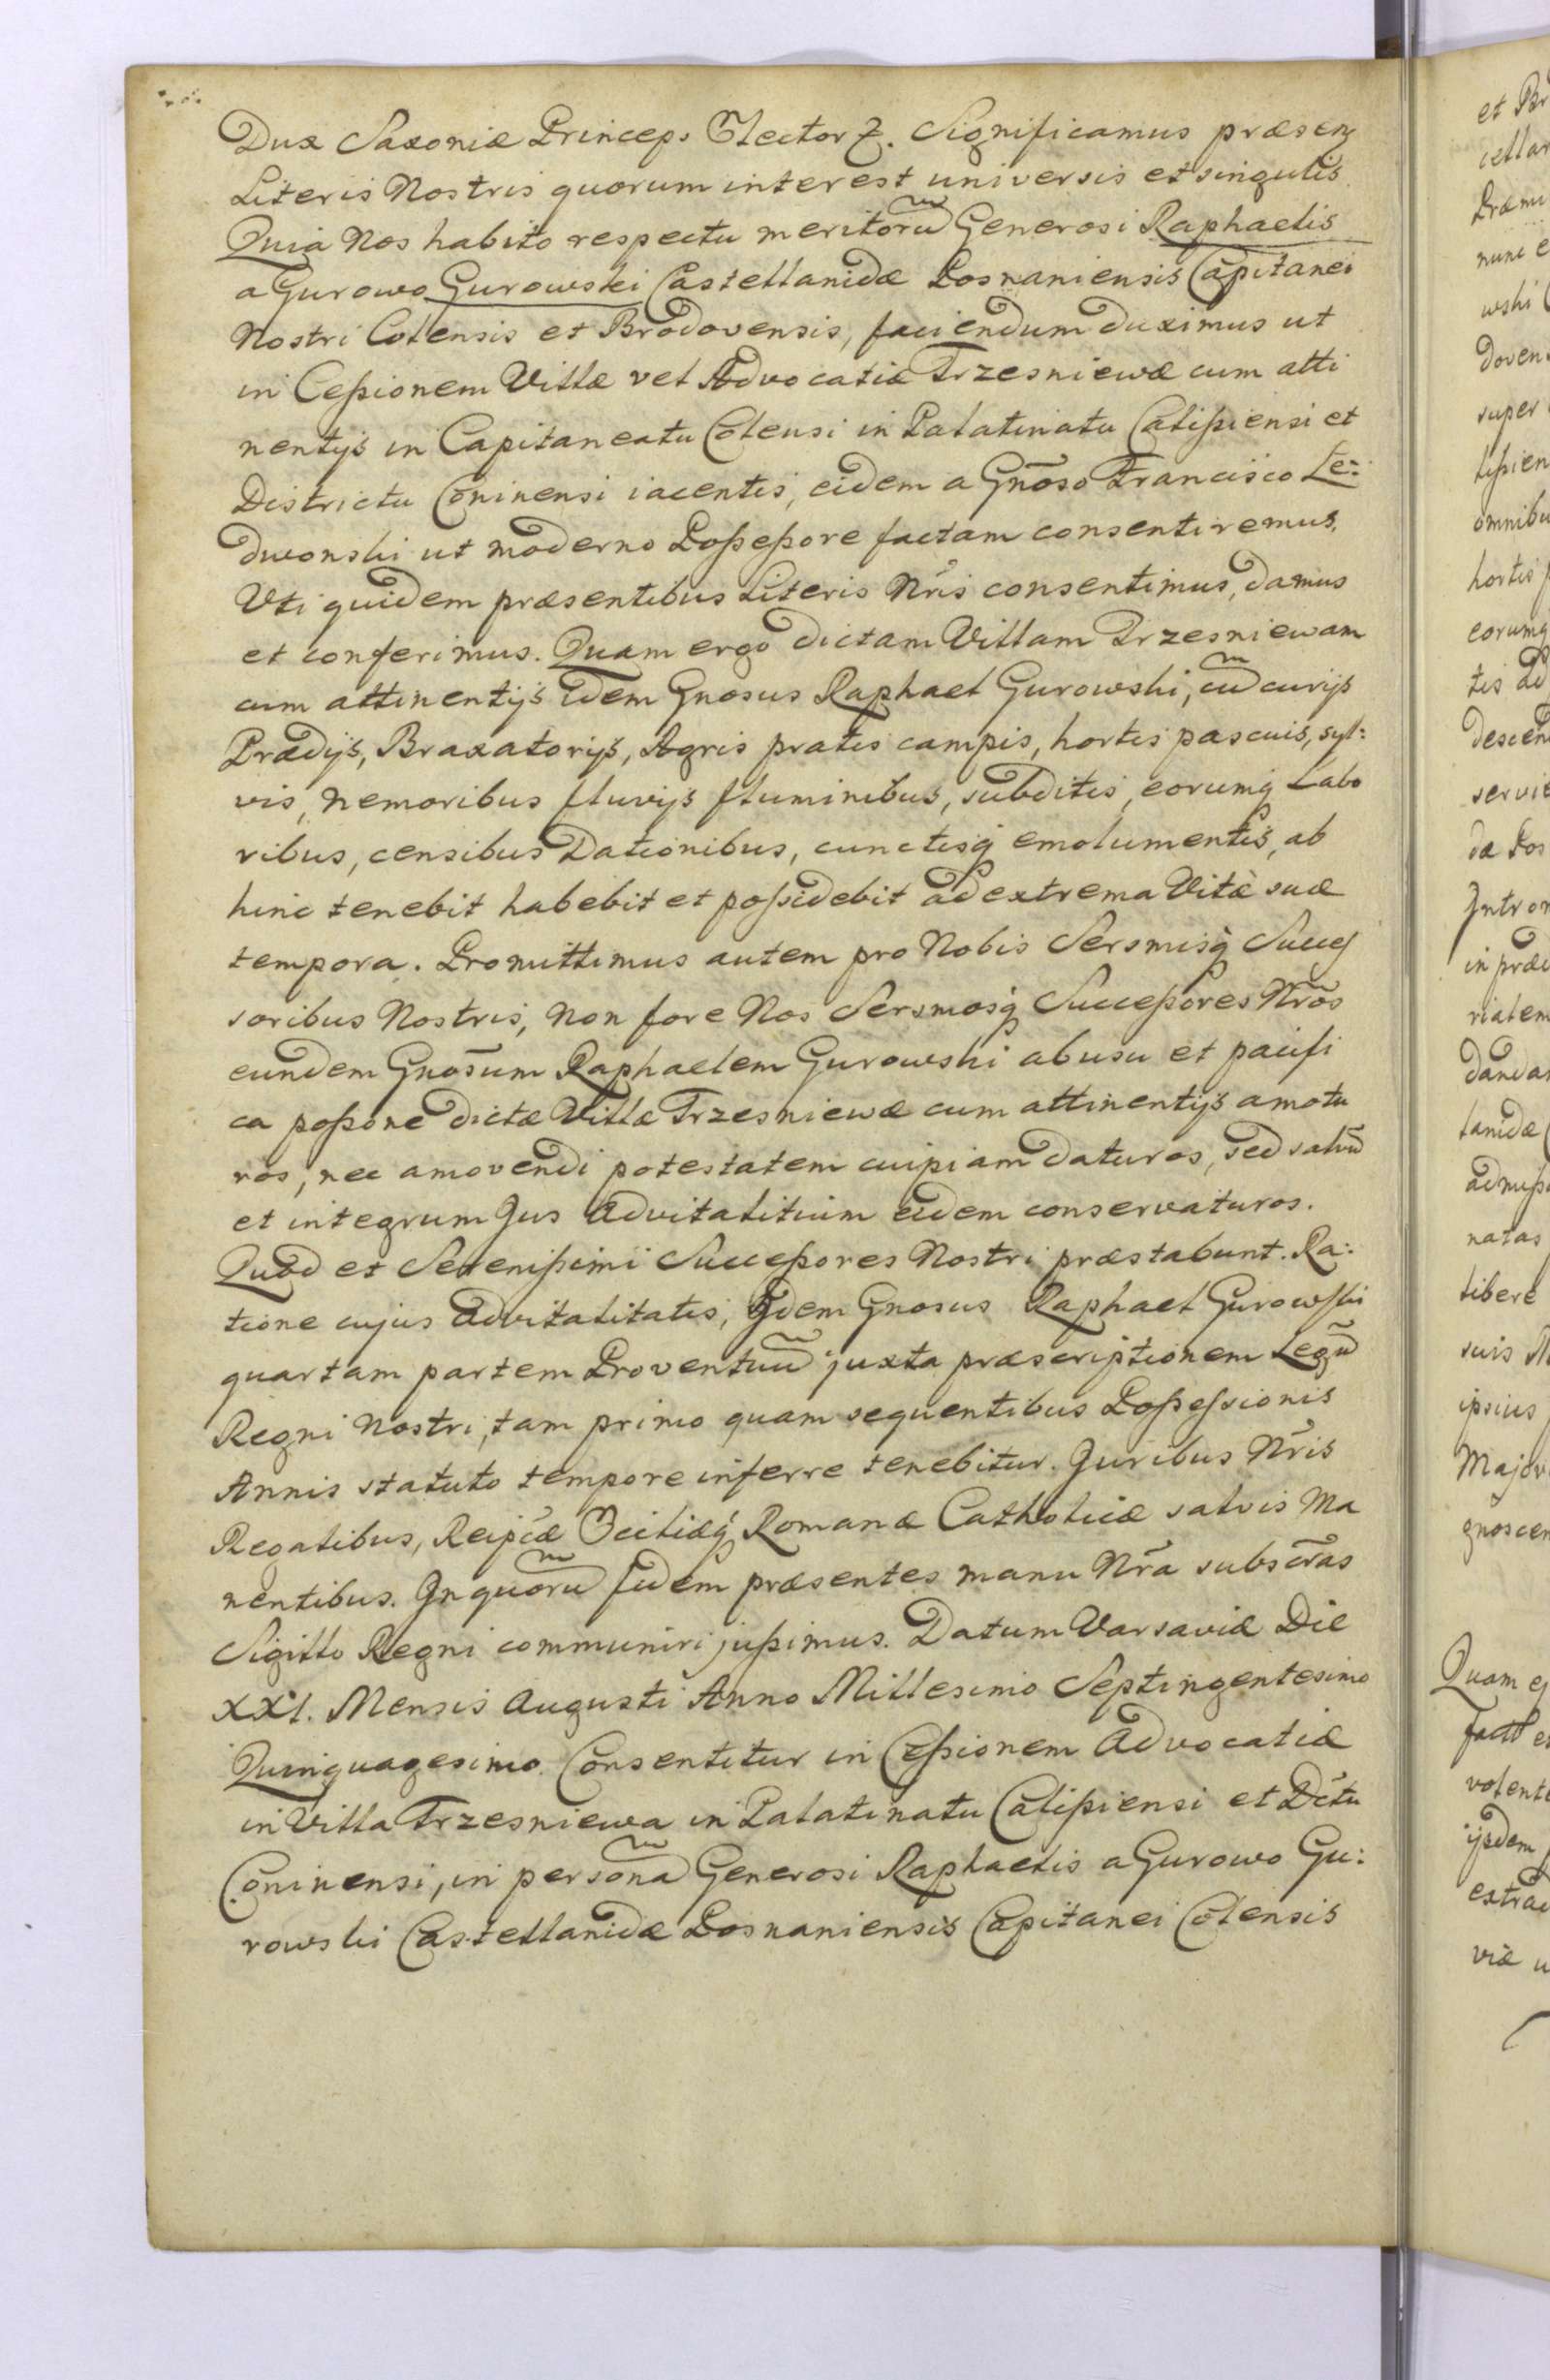 Dux Saxoniæ Princeps Elector &. Significamus præsen
Literis Nostris quorum interest universis et singulis
Quia Nos habito respectu meritorũ Generosi Raphaelis
a Gurowo Gurowski Castellanidæ Posnaniensis Capitanei
Nostri Colensis et Brodovensis, faciendum duximus ut
in Ceßionem Villæ vel Advocatiæ Trzesniewæ cum atti
nentijs in Capitaneatu Colensi in Palatinatu Calißiensi et
Districtu Coninensi iacentis, eidem a Gnõso Francisco Le=
dwonski ut moderno Poßeßore factam consentiremus.
Uti quidem præsentibus Literis Nrĩs consentimus, damus
et conferimus. Quam ergo dictam Villam Trzesniewam
cum attinentijs idem Gnosus Raphael Gurowski, cũ curijs
Prædijs, Braxatorijs, Agris pratis campis, hortis pascuis, syl=
vis, nemoribus fluvijs fluminibus, subditis, eorumq́ Labo
ribus, censibus Dationibus, cunctisq́ emolumentis, ab
hinc tenebit habebit et poßidebit ad extrema Vitæ suæ
tempora. Promittimus autem pro Nobis Sersmisq́ Succes
soribus Nostris, non fore Nos Sersmosq́ Succeßores Nrõs
eundem Gnõsum Raphaelem Gurowski ab usu et pacifi
ca poßone dictæ Villæ Trzesniewæ cum attinentijs amotu
ros, nec amovendi potestatem cuipiam daturos, sed salvũ
et integrum Jus Advitalitium eidem conservaturos.
Quod et Serenißimi Succeßores Nostri præstabunt. Ra=
tione cujus Advitalitatis, Idem Gnosus Raphael Gurowski
quartam partem Proventuũ juxta præscriptionem Legũ
Regni Nostri, tam primo quam sequentibus Poßeßionis
Annis statuto tempore inferre tenebitur. Juribus Nrĩs
Regalibus, Reipcæ Eccliæq́ Romanæ Catholicæ salvis ma
nentibus. In quorũ fidem præsentes manu Nrã subscrãs
Sigillo Regni communiri jußimus. Datum Varsaviæ Die
XXI. Mensis Augusti Anno Millesimo Septingentesimo
Quinquagesimo. Consentitur in Ceßionem Advocatiæ
in Villa Trzesniewa in Palatinatu Calißiensi et Dctu
Coninensi, in personã Generosi Raphaelis a Gurowo Gu=
rowski Castellanidæ Posnaniensis Capitanei Colensis